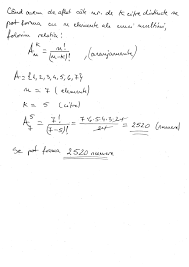 Când avem de aflat câte nr. de k cifre distincte se
pot forma cu n elemente ale unei mulțimi,
folosim relația:
A_n^k = n!/(n-k)! , (aranjamente)
A = {1, 2, 3, 4, 5, 6, 7}
n = 7 (elemente)
k = 5 (cifre)
A_7^5 = 7!/(7-5)! = 7·6·5·4·3·2!/2! = 2520 (numere)
Se pot forma 2520 numere